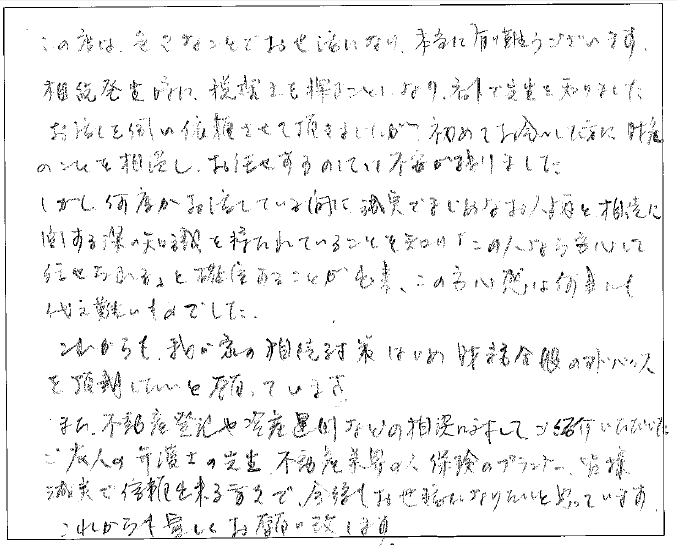 この度は、大変なことでお世話になり、本当に有り難うございます。
相続発生時に、税理士を探すことになり、紹介で先生を知りました
お話しを伺い依頼させて頂きましたが、初めてお会いした方に財産
のことを相談し、お任せするのしては不安が残りました
しかし、何度かお話している間に誠実でまじめなお人柄と相続に
関する深い知識を持たれていることを知り「この人なら安心して
任せられる」と確信することが出来、この安心感は何事にも
代え難いものでした。
これからも、我が家の相続対策はじめ財務全般のアドバイス
を頂戴したいと願っています
また、不動産登記や資産運用などの相談にましてご紹介いただいた
ご友人の弁護士の先生、不動産業界の人、保険のプランナー、皆様
誠実で信頼出来る方々で、今後もお世話になりたいと思っています
これからも宜しくお願い致します。